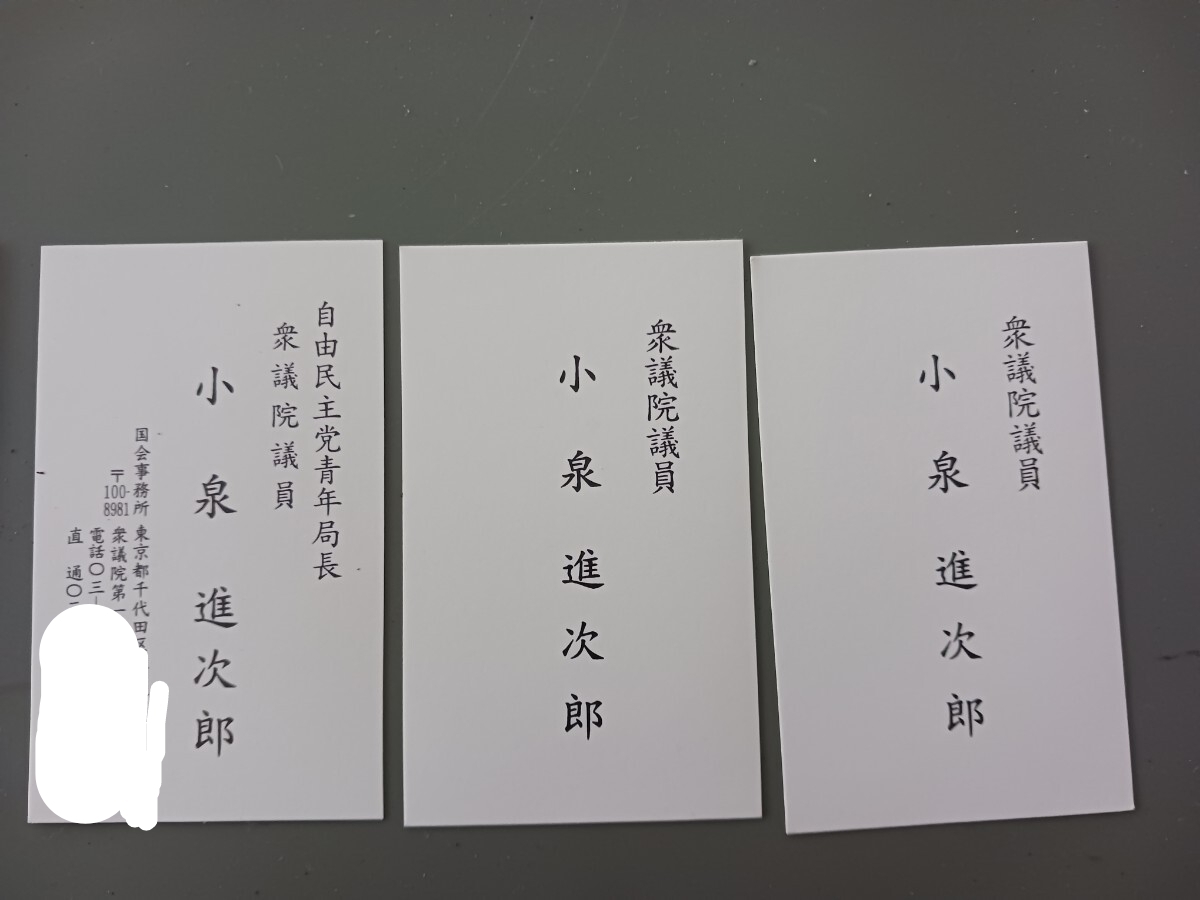 自由民主党青年局長
衆議院議員
小泉進次郎
国会事務所 東京都千代田区
〒100-8981 衆議院第一
電話〇三
直通〇
衆議院議員
小泉進次郎
衆議院議員
小泉進次郎